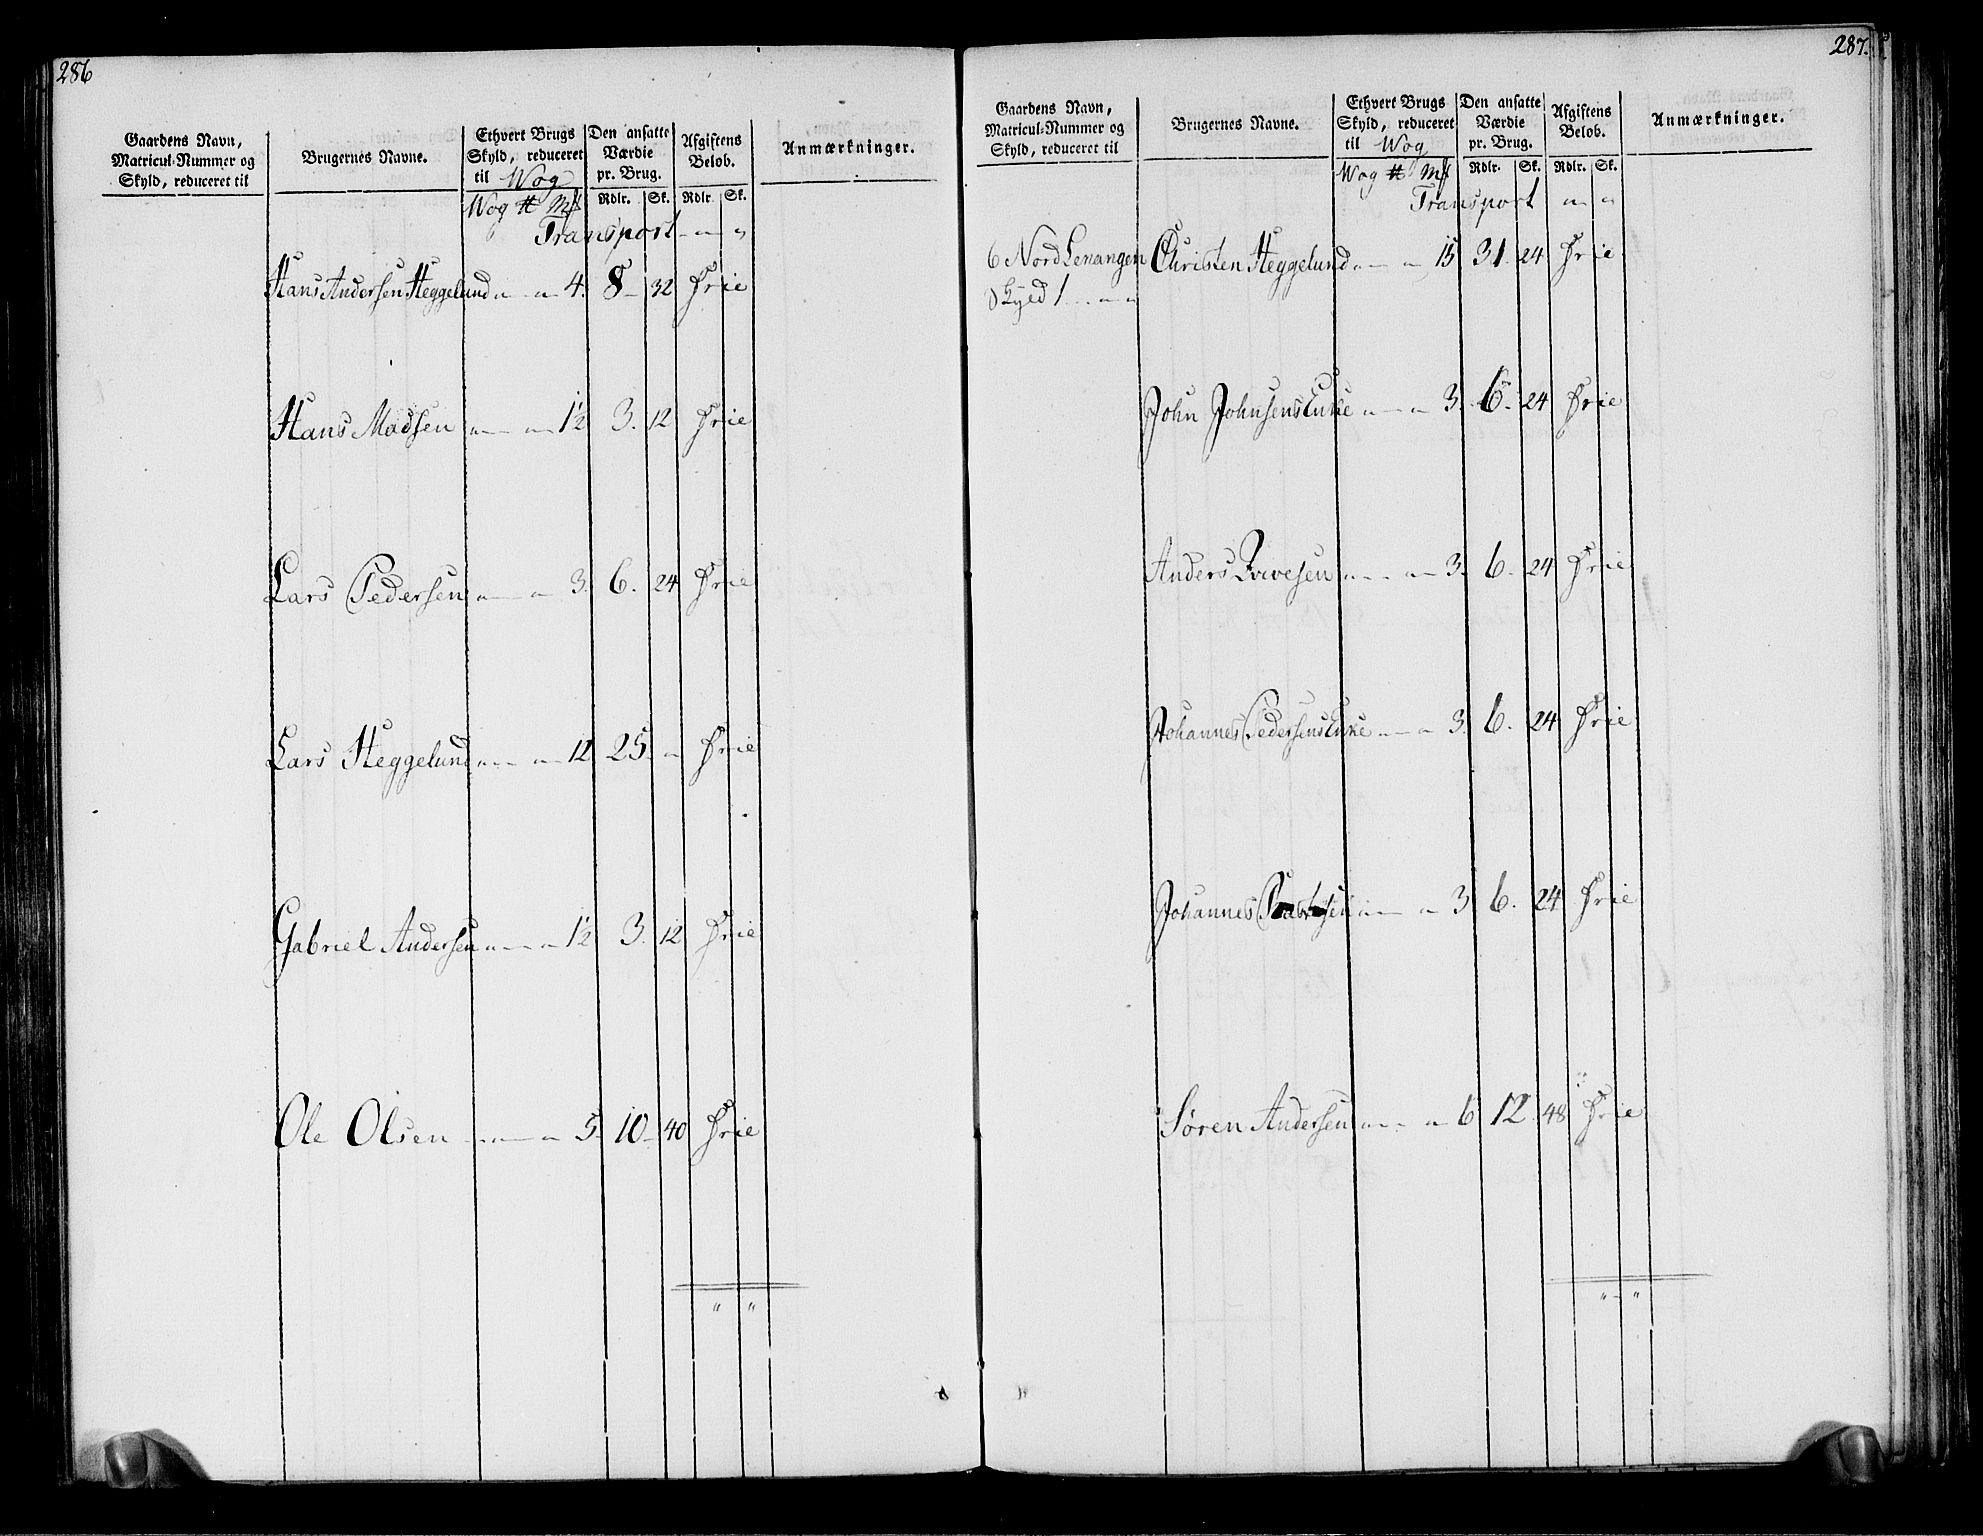 286
Gaardens Navn, Matricul-Nummer og Skyld, reduceret til
Brugernes Navne.
Ethvert Brugs Skyld, reduceret til Wog
Den ansatte Værdie pr. Brug.
Afgiftens Beløb.
Anmærkninger.
Wog ℔ Mk Rdlr. Sk. Rdlr. Sk.
Transport - " - "
Hans Andersen Heggelund " - " 4. 8 - 32 Frie
Hans Madsen " - " 1½ 3. 12 Frie
Lars Pedersen " - " 3. 6. 24 Frie
Lars Heggelund " - " 12 25. " Frie
Gabriel Andersen " - " 1½ 3. 12 Frie
Ole Olsen " - " 5. 10 - 40 Frie
" "
287.
Gaardens Navn, Matricul-Nummer og Skyld, reduceret til
Brugernes Navne.
Ethvert Brugs Skyld, reduceret til Wog
Den ansatte Værdie pr. Brug.
Afgiftens Beløb.
Anmærkninger.
Wog ℔ Mk Rdlr. Sk. Rdlr. Sk.
Transport " - "
6 Nord Lenangen Christen Heggelund " - " 15 31. 24 Frie
Skyld 1 . " - "
John Johnsens Enke " - " 3. 6. 24 Frie
Anders Iversen " - " 3. 6. 24 Frie
Johannes Pedersens Enke " - " 3. 6. 24 Frie
Johannes " - " 3 6. 24 Frie
Søren Andersen " - " 6 12 48 Frie
" - "